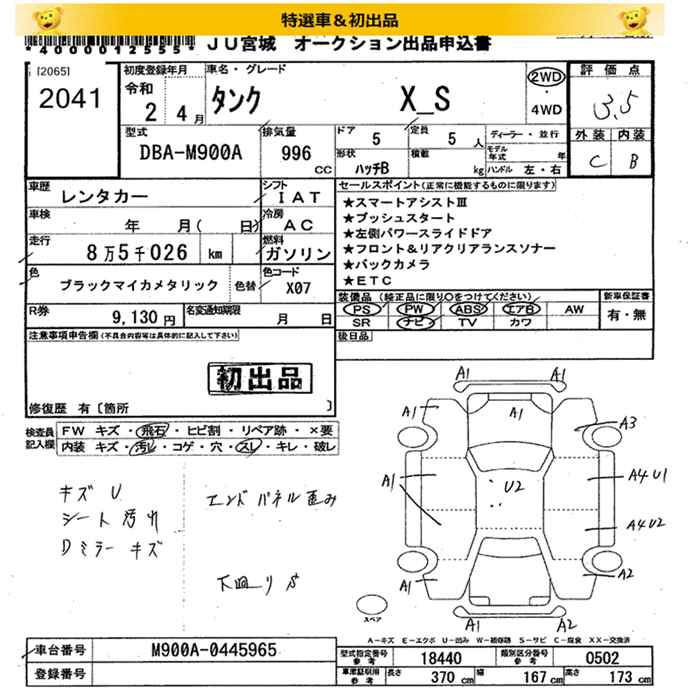 特選車＆初出品
*4000012555*
JU宮城 オークション出品申込書
[2065]
2041
初度登録年月
令和
2 4月
車名・グレード
タンク X_S
2WD
・
4WD
評価点
3.5
外装 内装
C B
型式
DBA-M900A
排気量
996 CC
ドア 5
形状 ハッチB
定員 5 人
積載 kg
ディーラー・並行
モデル年式 年
ハンドル 左・右
車歴 レンタカー
シフト IAT
車検 年 月( 日)
冷房 AC
走行 8万5千026 km
燃料 ガソリン
色 ブラックマイカメタリック 色替
色コード X07
R券 9,130円
名変通知期限 月 日
セールスポイント(正常に機能するものに限ります)
★スマートアシストⅢ
★プッシュスタート
★左側パワースライドドア
★フロント&リアクリアランスソナー
★バックカメラ
★ETC
装備品 (純正品に限り○をつけてください)
PS PW ABS エアB AW
SR ナビ TV カワ
新車保証書
有・無
注意事項申告欄(不具合内容等は具体的に記入して下さい)
後日品
初出品
修復歴 有〔箇所 〕
検査員記入欄
FW キズ・飛石・ヒビ割・リペア跡・×要
内装 キズ・汚レ・コゲ・穴・スレ・キレ・破レ
キズ U
シート汚れ
Dミラー キズ
エンドパネル歪み
下廻りS
A1 A1
A1 A1 A3
A1 U2 A4 U1
A4 U2
A1 A2
A1 A2
スペア
A-キズ E-エクボ U-凹み W-補修跡 S-サビ C-腐食 XX-交換済
車台番号 M900A-0445965
登録番号
型式指定番号 参考 18440
類別区分番号 参考 0502
車庫証明用 参考 長さ 370 cm 幅 167 cm 高さ 173 cm